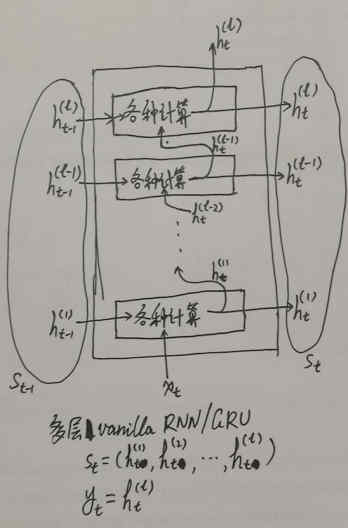 h_t^{(l)}
h_{t-1}^{(l)} 各种计算 h_t^{(l)}
h_t^{(l-1)}
h_{t-1}^{(l-1)} 各种计算 h_t^{(l-1)}
h_t^{(l-2)}
⋮
h_t^{(1)}
h_{t-1}^{(1)} 各种计算 h_t^{(1)}
S_{t-1} S_t
x_t
多层 vanilla RNN/GRU
S_t=(h_t^{(1)}, h_t^{(2)}, ⋯, h_t^{(l)})
y_t=h_t^{(l)}